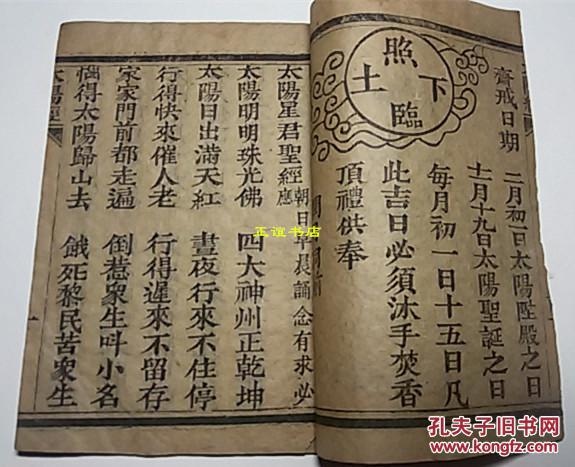 照臨下土
齋戒日期
二月初一日太陽陞殿之日
十一月十九日太陽聖誕之日
每月初一日十五日凡
此吉日必須沐手焚香
頂禮供奉
太陽星君聖經
朝日早晨誦念有求必應
太陽明明珠光佛 四大神州正乾坤
太陽日出滿天紅 晝夜行來不住停
行得快來催人老 行得遲來不留存
家家門前都走遍 倒惹衆生呌小名
惱得太陽歸山去 餓死黎民苦衆生
太陽經
正谊书店
孔夫子旧书网